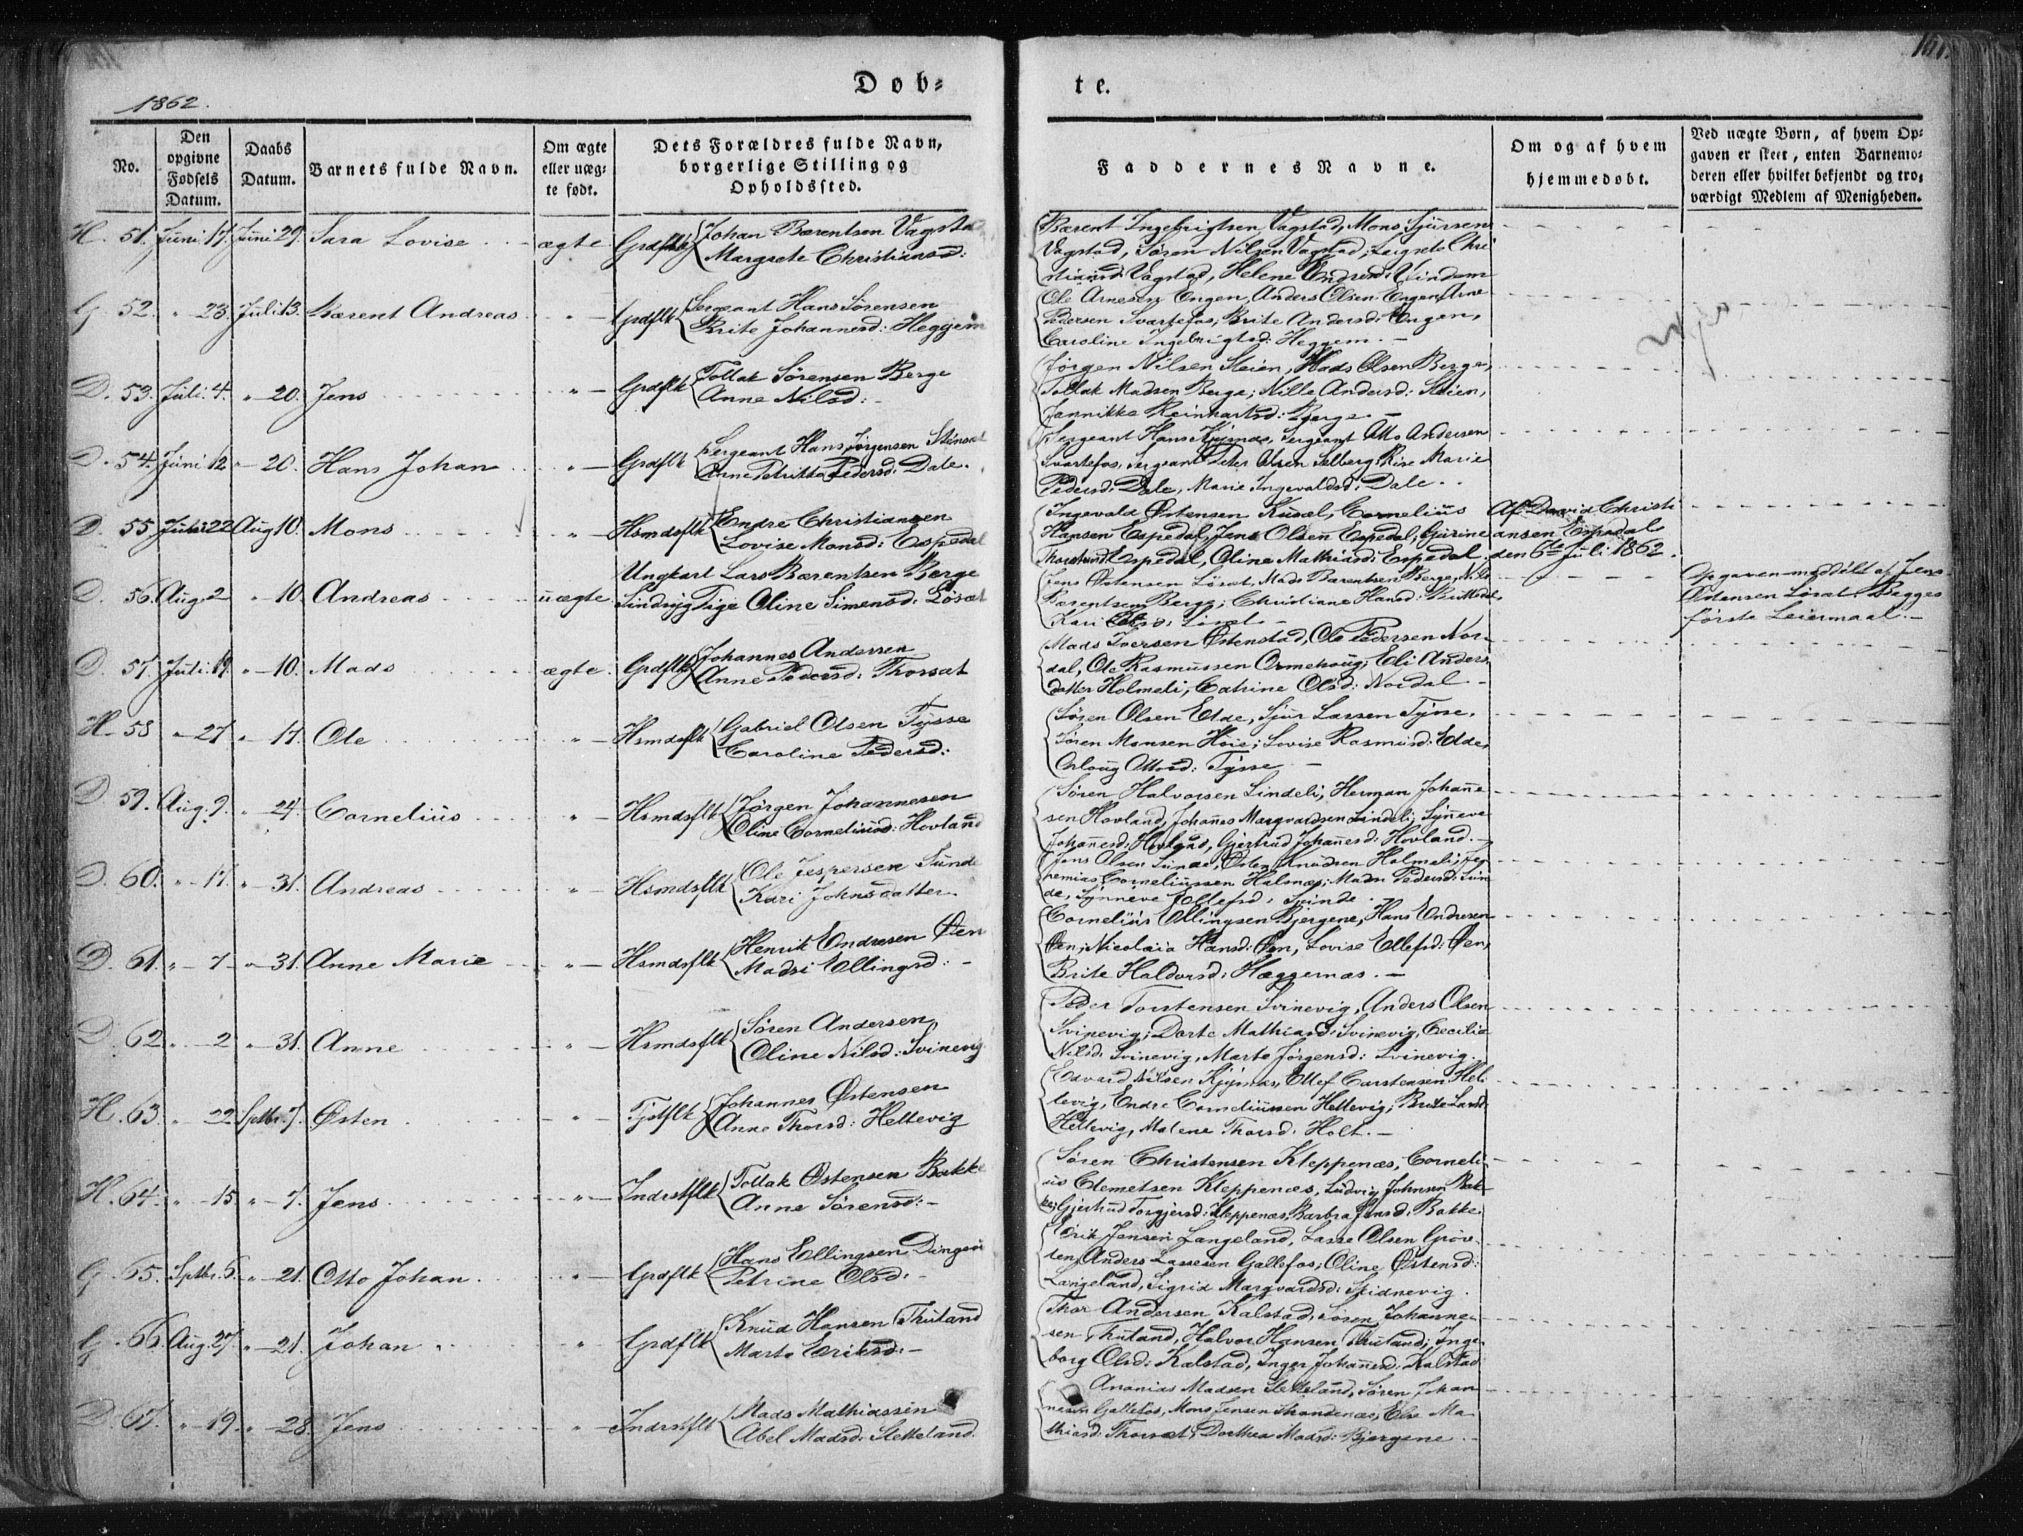 1862.
Døb=
te.
No.
Den opgivne Fødsels Datum.
Daabs Datum.
Barnets fulde Navn.
Om ægte eller uæg= te født.
Dets Forældres fulde Navn, borgerlige Stilling og Opholdssted.
Faddernes Navne.
Om og af hvem hjemmedøbt.
Ved uægte Børn, af hvem Op= gaven er skeet, enten Barnemo= deren eller hvilket bekjendt og tro= værdigt Medlem af Menigheden.
H. 51. Juni 17. Juni 29. Sara Lovise ægte Grdflk Johan Bærentsen Vagstad
Margrete Christiansd:
Bærent Ingebrigtsen Vagstad, Mons Sjursen
Vagstad, Søren Nilsen Vagstad; Chri
stiansd: Vagstad, Helene Endresd:
G 52. " 23. Juli 13. Bærent Andreas " Grdflk Sergeant Hans Sørensen
Brite Johannesd: Heggjem
Ole Arnesen Engen, Anders Olsen Engen, Arne
Pedersen Svartefos; Brite Andersd: Engen,
Caroline Ingebrigtsd: Heggem. —
D. 53. Juli 4. " 20. Jens " Grdflk Tollak Sørensen Berge
Anne Nilsd: —
Jørgen Nilsen Steien, Mads Olsen Berge,
Tollak Madsen Berge; Nille Andersd: Steien,
Jannikke Reinhartsd: Berge —
D. 54. Juni 12 " 20. Hans Johan " Grdflk Sergeant Hans Jørgensen
Anne Petrikka Pedersd: Dale.
Sergeant Hans Sergeant Otto Andersen
Svartefos, Sergeant Peter Olsen Marie
Pedersd: Dale, Marie Ingevaldsd: Dale.
D. 55. Juni 22 Aug 10. Mons " Hsmdsflk Endre Christiansen
Lovise Monsd: Espedal
Ingevald Østensen Cornelius
Hansen Espedal, Jens Olsen Espedal; Gurine
Espedal, Oline Mathiasd: Espedal.
Af David Christi
ansen Espedal
den 6te Juli 1862.
D. 56. Aug. 2 " 10. Andreas uægte Ungkarl Lars Bærentsen Berge
Oline Simensd: Løset
Jens Østensen Løset, Mads Bærentsen Berge, Nils
Bærentsen Berge; Christiane Hansd:
Kari Løset —
Opgaven meddelt af Jens
Østensen Løset. Begges
første Leiermaal. —
D. 57. Juli 19. " 10. Mads ægte. Grdflk Johannes Andersen
Anne Pedersd: Thorsæt
Mads Iversen Østenstad, Ole Pedersen Nor-
dal, Ole Rasmussen Ormehoug; Eli Anders
datter Holmeli, Catrine Olsd: Nordal —
H. 58 " 27 " 17. Ole " Hsmdsflk Gabriel Olsen Tysse
Caroline Pedersd:
Søren Olsen Elde, Sjur Larsen Tysse,
Søren Monsen Høie; Lovise Rasmusd: Elde,
Ottosd: Tysse —
D 59. Aug. 9. " 24. Cornelius " Hsmdsflk Jørgen Johannesen
Oline Corneliusd: Hovland
Søren Halvorsen Lindeli, Herman Johanne
sen Hovland, Johanes Margvardsen Lindeli; Synneve
Johanesd: Hovland, Gjertrud Johanesd: Hovland. —
D. 60. " 17. " 31. Andreas " Hsmdsflk Ole Jespersen Sunde
Kari Johnsdatter.
Jens Olsen Sunde, Østen Knudsen Holmeli, Je-
remias Corneliussen Halsnæs; Pedersd: Sun
de, Synneve Ellefsd: Sunde.
D. 61. " 7 " 31. Anne Marie " Hsmdsflk Henrik Endresen Øen
Madsi Ellingsd: —
Cornelius Ellingsen Bjergene, Hans Endresen
Øen; Nicolaia Hansd: Øen, Lovise Ellefsd: Øen,
Brite Haldorsd: Hæggernæs. —
D. 62. " 2 " 31. Anne " Hsmdsflk Søren Andersen,
Oline Nilsd: Svinevig
Peder Torstensen Svinevig, Anders Olsen
Svinevig; Dorte Mathiasd: Svinevig, Cecilie
Nilsd: Svinevig, Marte Jørgensd: Svinevig.
H. 63. " 22 Septbr. 7. Østen " Tjstflk Johannes Østensen
Anne Thorsd: Hellevig
Edvard Nilsen Ellef Carstensen Hel
levig, Endre Corneliussen Hellevig; Brite Larsd:
Hellevig, Malene Thorsd: Holt. —
H. 64. " 15 " 7. Jens " Indrstflk Tollak Østensen Bakke
Anne Sørensd: —
Søren Christensen Kleppenæs, Corneli
us Clemetsen Kleppenæs, Ludvig Johnsen Bak-
ke; Gjertrud Torgjersd: Kleppenæs, Barbra Jensd: Bakke
G 65. Sptbr. 6. " 21. Otto Johan " Grdflk Hans Ellingsen Dingen
Petrine Olsd: —
Erik Jensen Langeland, Lasse Olsen
Anders Lassesen Gallefos; Oline Østensd:
Langeland, Sigrid Margvardsd: Skidnevig.
G 66. Aug. 27. " 21. Johan " Grdflk Knud Hansen Thuland
Marte Eriksd: —
Thor Andersen Kalstad, Søren Johanne-
sen Thuland, Halvor Hansen Thuland; Inge-
borg Olsd: Kalstad, Inger Johanesd: Kalstad
D. 67. " 19. " 28. Jens " Indrstflk Mads Mathiassen
Abel Madsd: Sletteland.
Ananias Madsen Sletteland, Søren Johan-
nesen Gallefos, Mons Jensen Strandenæs; Else Ma-
thiasd: Thorsæt, Dorthea Madsd: Bjergene —